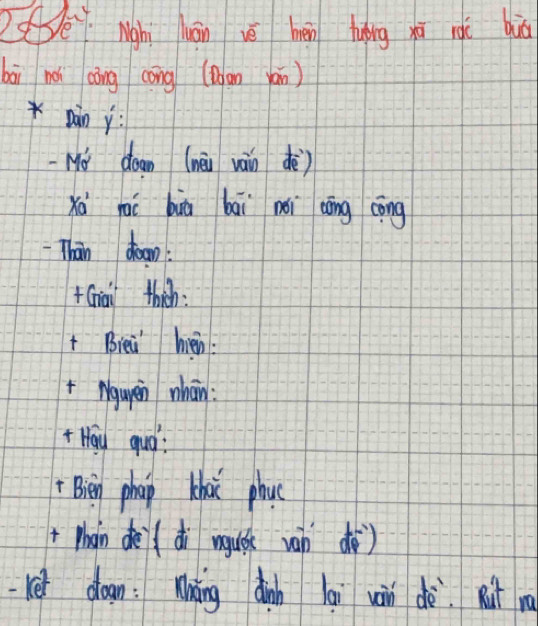 Đề: Nghị luận về hiện tượng xả rác bừa
bãi nơi công cộng (Đoạn văn)
* Dàn ý:
- Mở đoạn (nêu vấn đề)
Xả rác bừa bãi nơi công cộng
- Thân đoạn:
+ Giải thích:
+ Biểu hiện:
+ Nguyên nhân:
+ Hậu quả:
+ Biện pháp khắc phục
+ Phản đề (đi ngược vấn đề)
- Kết đoạn: Khẳng định lại vấn đề. Rút ra